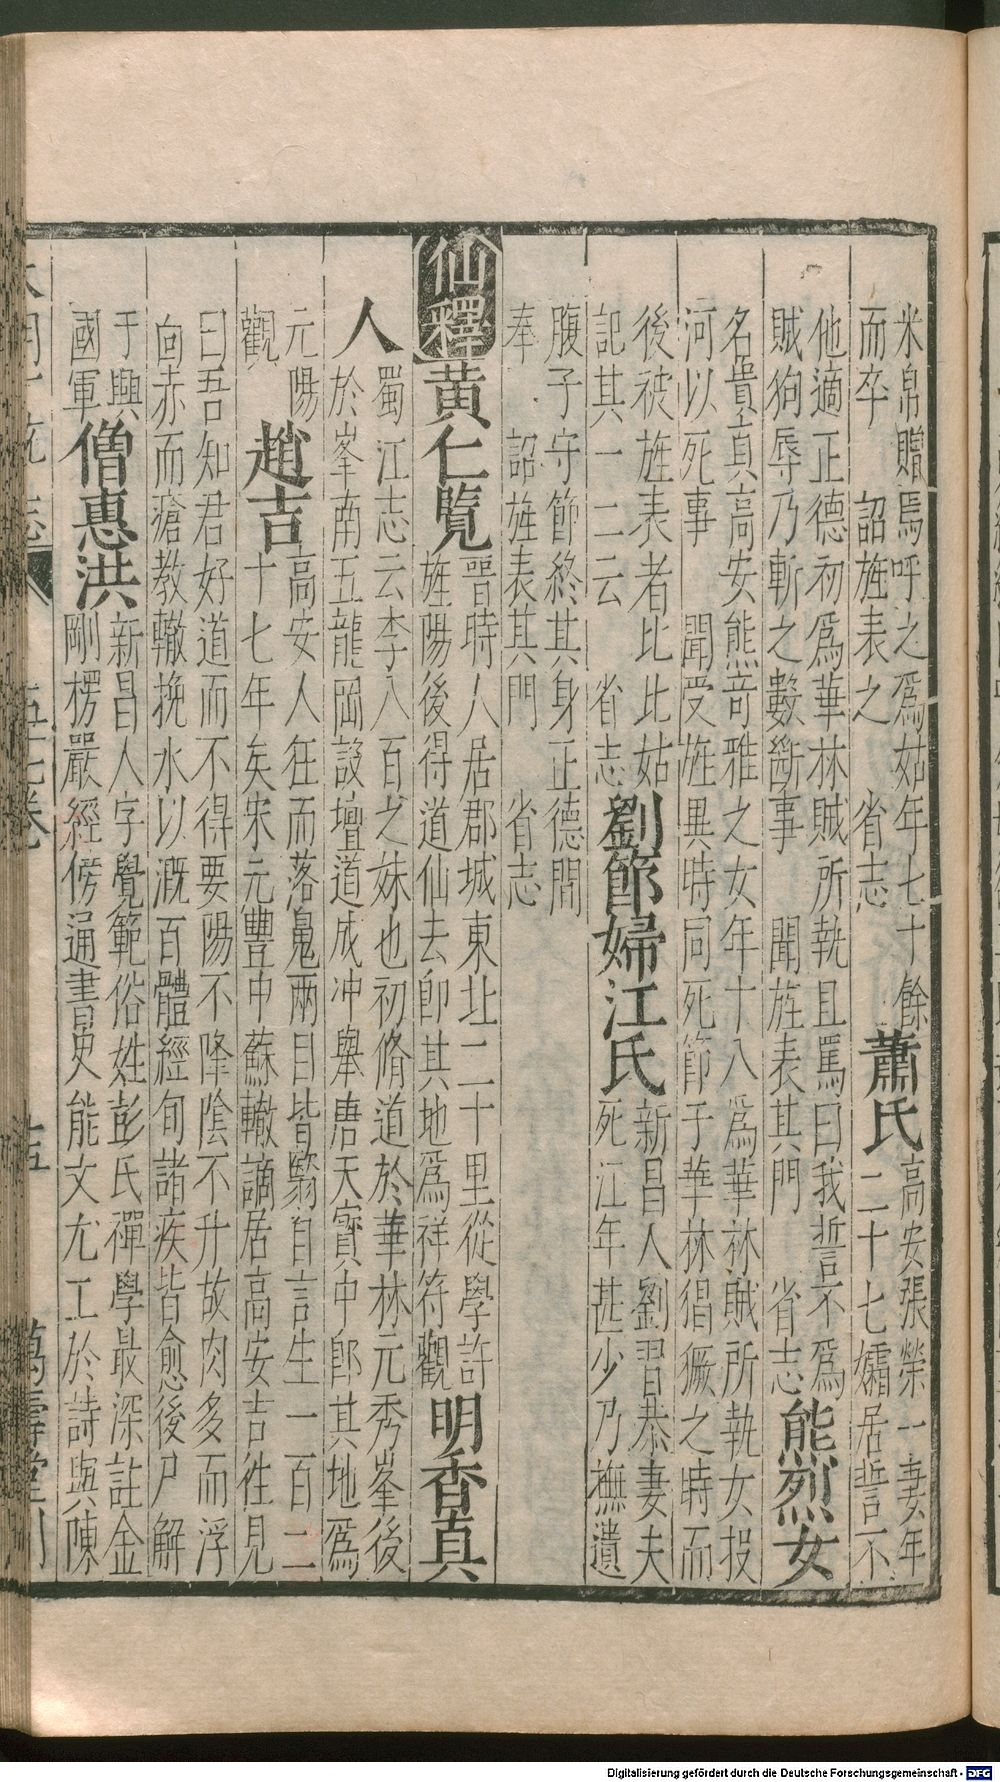 米帛贍焉呼之爲姑年七十餘
而卒 詔旌表之 省志
蕭氏
高安張榮一妻年
二十七孀居誓不
他適正德初爲華林賊所執且罵曰我誓不爲
賊狗辱乃斬之數斷事 聞旌表其門 省志
熊烈女
名貴真高安熊竒雅之女年十八爲華林賊所執女投
河以死事 聞受旌異時同死節于華林猖獗之時而
後被旌表者比比姑
記其一二云 省志
劉節婦江氏
新昌人劉習恭妻夫
死江年甚少乃撫遺
腹子守節終其身正德間
奉 詔旌表其門 省志
仙釋
黄仁覽
晋時人居郡城東北二十里從學許
旌陽後得道仙去即其地爲祥符觀
明香真
人
蜀江志云李八百之妹也初脩道於華林元秀峯後
於峯南五龍岡設壇道成冲舉唐天寳中郎其地爲
元陽
觀
趙吉
高安人狂而落魄兩目皆翳自言生一百二
十七年矣宋元豐中蘇轍謫居高安吉徃見
曰吾知君好道而不得要陽不降陰不升故肉多而浮
面赤而瘡教轍挽水以溉百體經旬諸疾皆愈後尸解
于興
國軍
僧惠洪
新昌人字覺範俗姓彭氏禪學最深註金
剛楞嚴經傍通書史能文尤工於詩與陳
萬壽堂刊
Digitalisierung gefördert durch die Deutsche Forschungsgemeinschaft - DFG